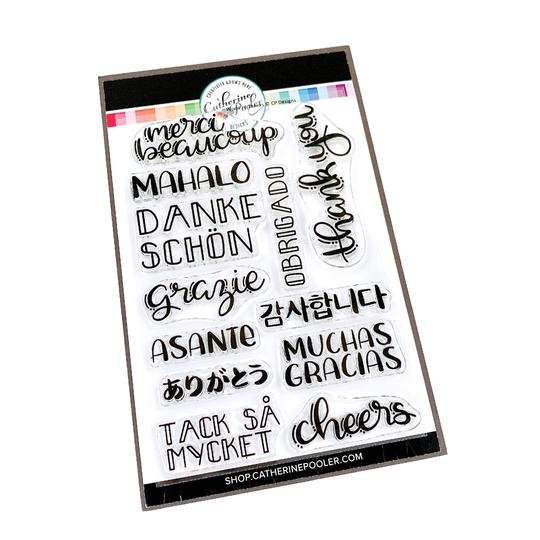 Catherine Pooler
DESIGNS
© CP Designs
merci
beaucoup
thank you
MAHALO
OBRIGADO
DANKE
SCHÖN
grazie
감사합니다
ASANTE
MUCHAS
GRACIAS
ありがとう
TACK SÅ
MYCKET
cheers
SHOP.CATHERINEPOOLER.COM